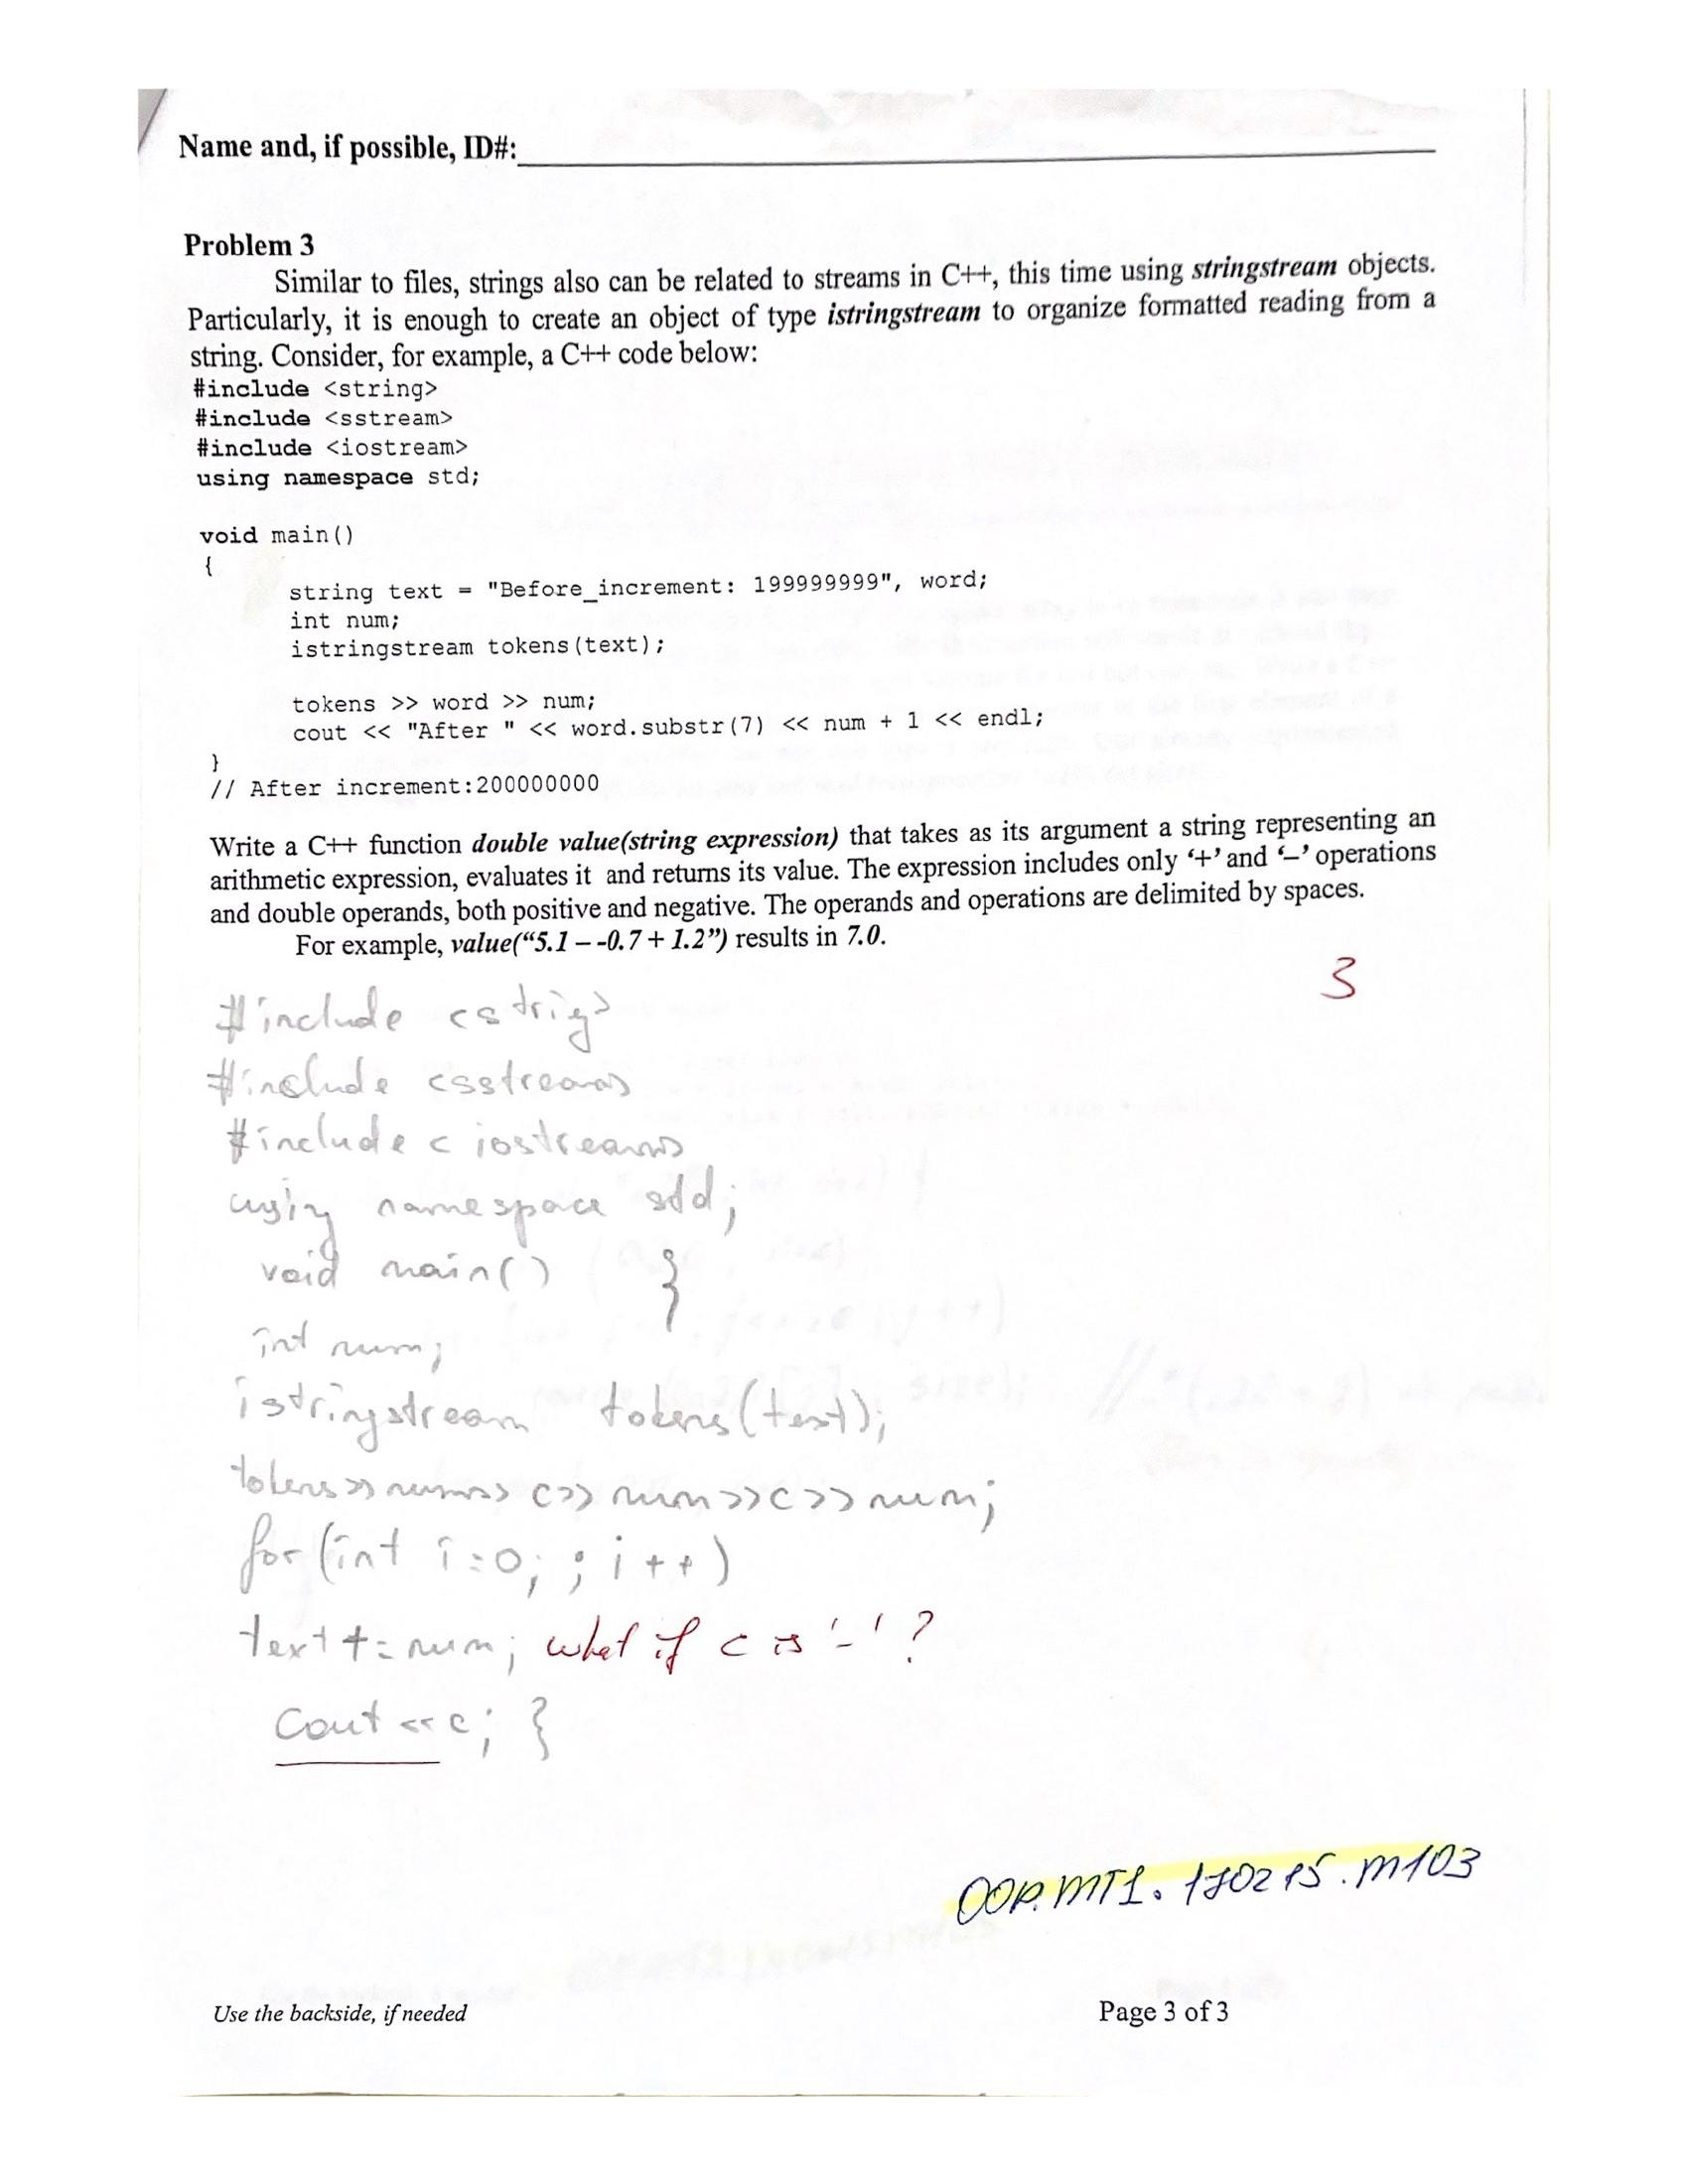 Name and, if possible, ID#:
Problem 3
Similar to files, strings also can be related to streams in C++, this time using stringstream objects.
Particularly, it is enough to create an object of type istringstream to organize formatted reading from a
string. Consider, for example, a C++ code below:
#include <string>
#include <sstream>
#include <iostream>
using namespace std;
void main()
{
string text = "Before_increment: 199999999", word;
int num;
istringstream tokens(text);
tokens >> word >> num;
cout << "After " << word.substr(7) << num + 1 << endl;
}
// After increment:200000000
Write a C++ function double value(string expression) that takes as its argument a string representing an
arithmetic expression, evaluates it and returns its value. The expression includes only ‘+’ and ‘–’ operations
and double operands, both positive and negative. The operands and operations are delimited by spaces.
For example, value(“5.1 – -0.7 + 1.2”) results in 7.0.
3
#include <strig>
#include <sstream>
#include < iostream>
using namespace std;
void main() }
int num;
istringstream tokens(text);
tokens >> num >> c >> num >> c >> num;
for (int i=0; ; i++)
text += num; what if c is '-' ?
cout << c; }
OOP.MT1.170215.M103
Use the backside, if needed
Page 3 of 3